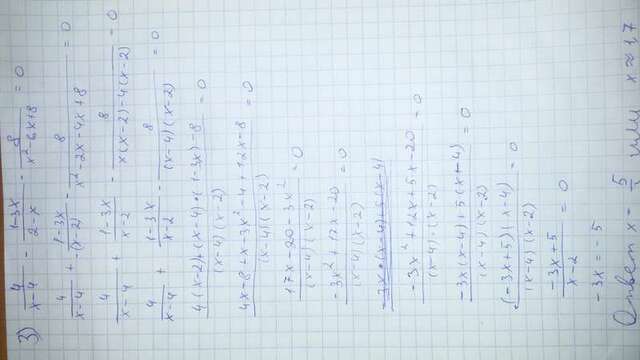 3) 4/(x-4) - (1-3x)/(2-x) - 8/(x²-6x+8) = 0
4/(x-4) - (1-3x)/(-(x-2)) - 8/(x²-2x-4x+8) = 0
4/(x-4) + (1-3x)/(x-2) - 8/(x(x-2)-4(x-2)) = 0
4/(x-4) + (1-3x)/(x-2) - 8/((x-4)(x-2)) = 0
(4(x-2)+(x-4)·(1-3x)-8)/((x-4)(x-2)) = 0
(4x-8+x-3x²-4+12x-8)/((x-4)(x-2)) = 0
(17x-20-3x²)/((x-4)(x-2)) = 0
(-3x²+17x-20)/((x-4)(x-2)) = 0
(-3x²+12x+5x-20)/((x-4)·(x-2)) = 0
(-3x(x-4)+5(x-4))/((x-4)(x-2)) = 0
(-3x+5)(x-4)/((x-4)(x-2)) = 0
(-3x+5)/(x-2) = 0
-3x = -5
Ответ x = 5/3 или x ≈ 1,7